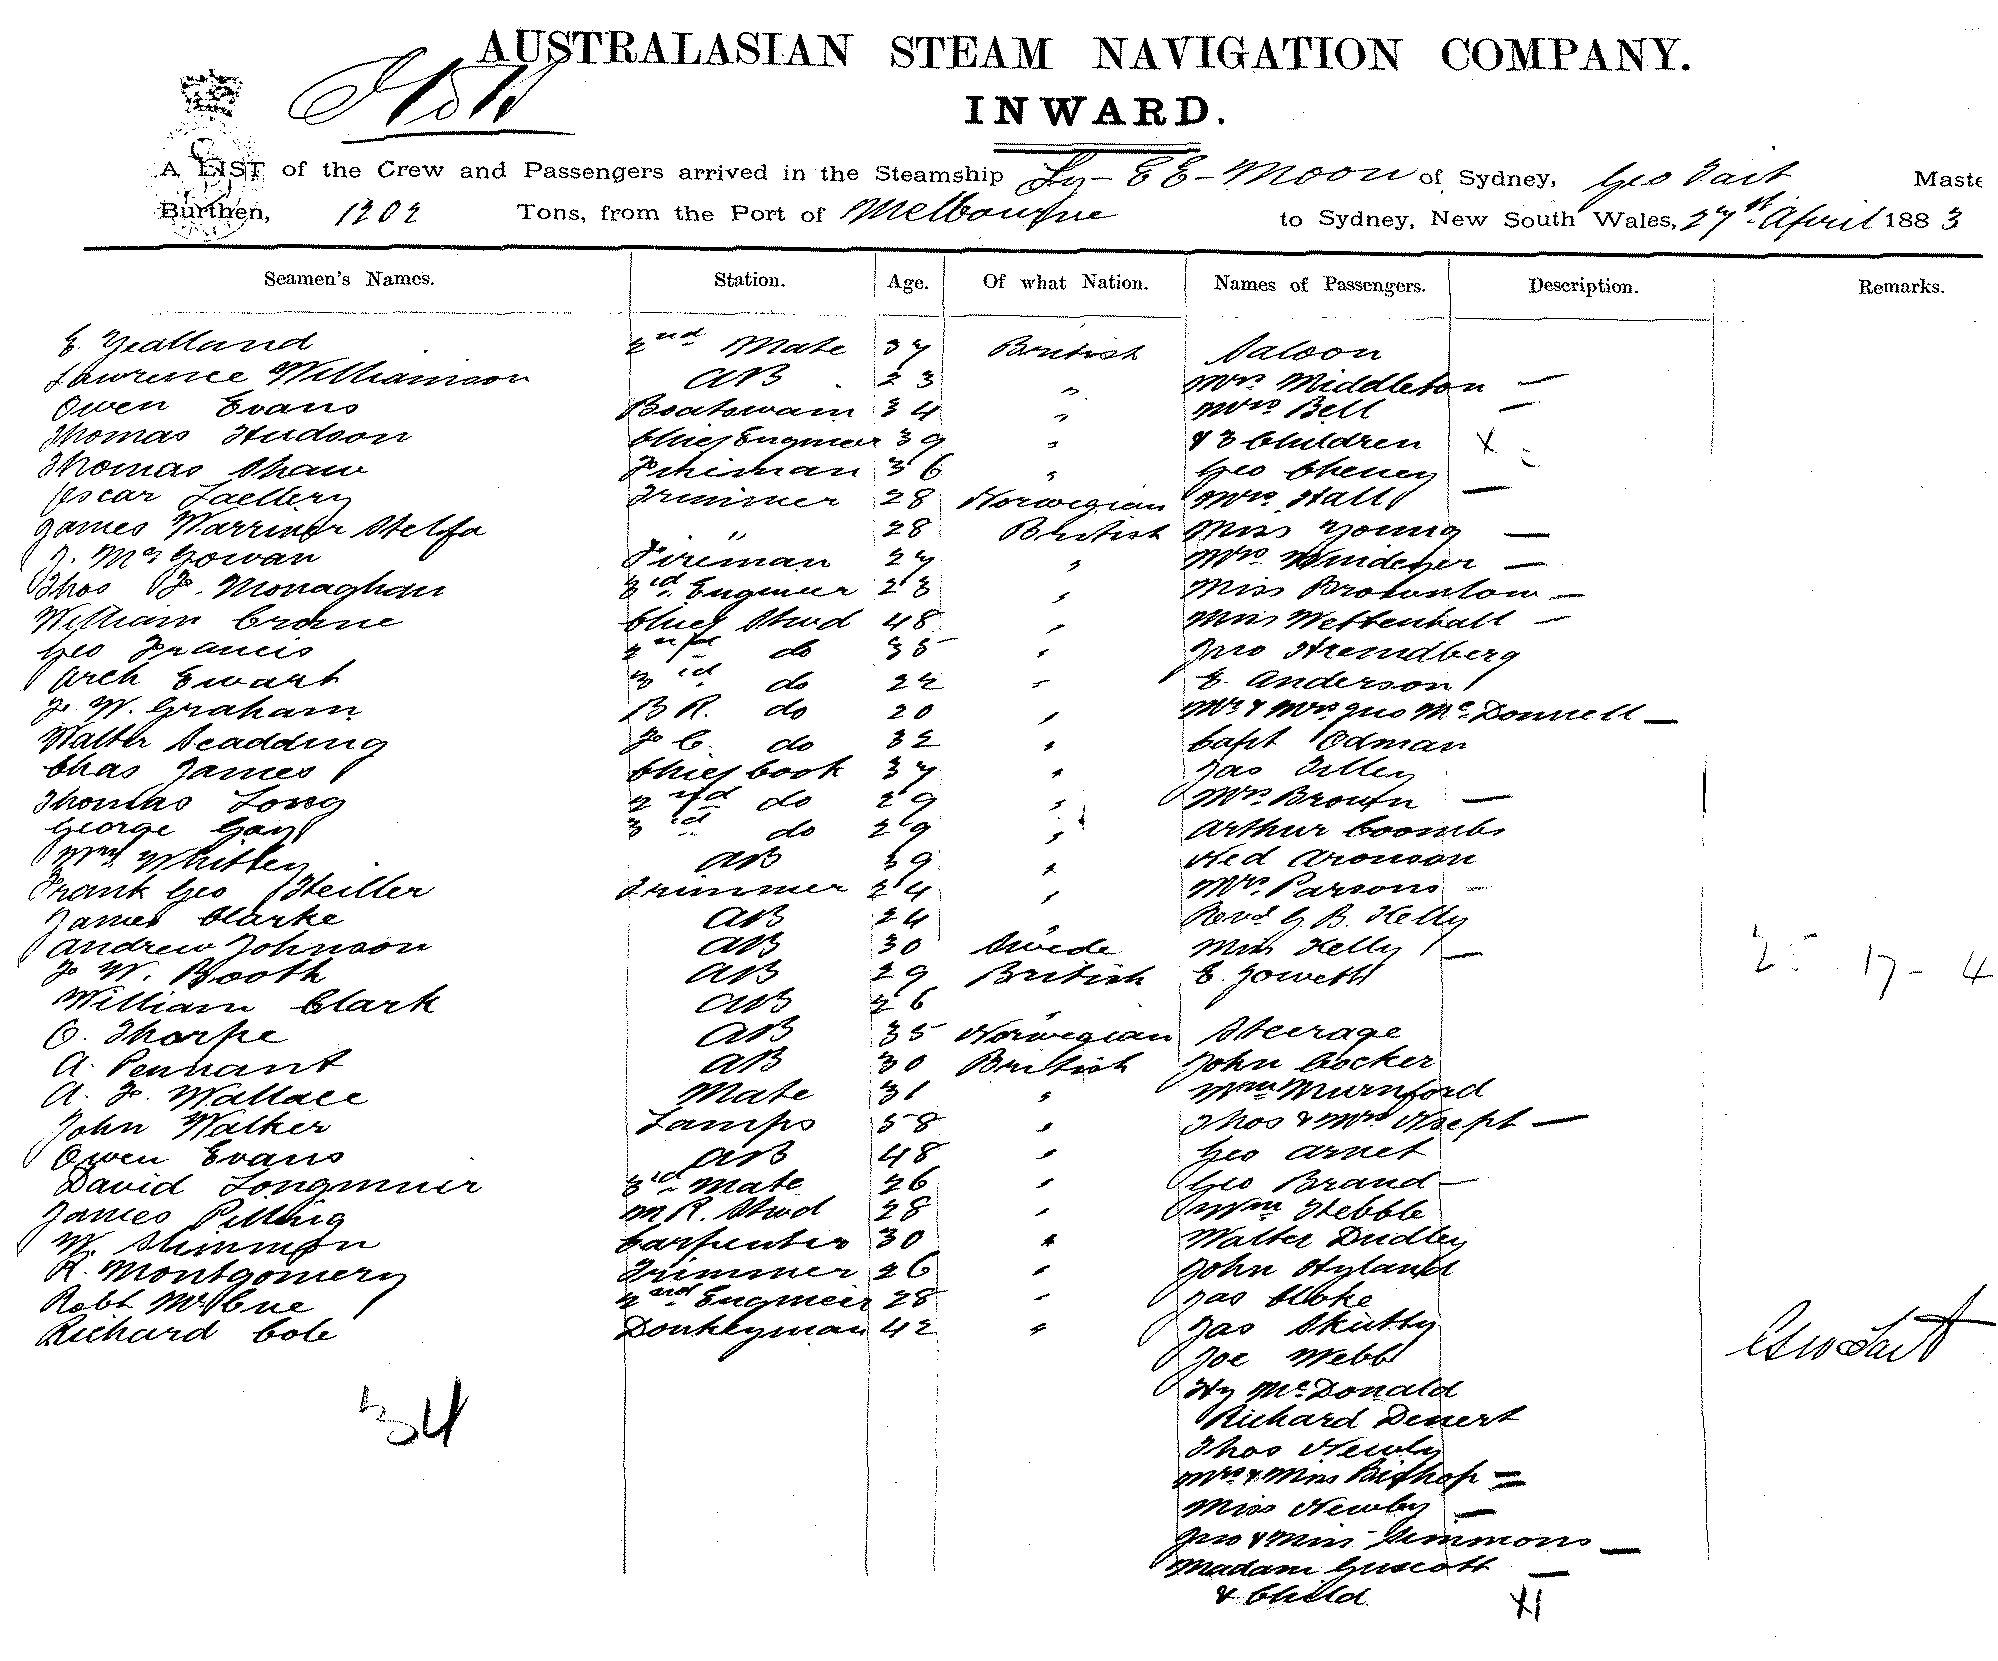 AUSTRALASIAN STEAM NAVIGATION COMPANY.
INWARD.
A LIST of the Crew and Passengers arrived in the Steamship Ly-EE-Moon of Sydney, Geo Tait Maste
Burthen, 1202 Tons, from the Port of Melbourne to Sydney, New South Wales, 27th April 1883
Seamen's Names. Station. Age. Of what Nation. Names of Passengers. Description. Remarks.
E. Yealland 2nd Mate 37 British Saloon
Lawrence Williamson AB 23 " Mrs Middleton —
Owen Evans Boatswain 34 " Mrs Bell —
Thomas Hudson Chief Engineer 39 " & 3 Children X
Thomas Shaw Fireman 36 " Geo Cheney
Oscar Trimmer 28 Norwegian Mrs Hall —
James Warriner " 28 British Miss Young —
McGowan Fireman 27 " Mrs —
Thos F. Monaghan 3rd Engineer 23 " Miss Brownlow —
William Crane Chief Stwd 48 " Miss Wettenhall —
Geo Francis 2nd do 35 " Jno
Arch Ewart 3rd do 22 " E. Anderson
J. W. Graham B R. do 20 " Mr & Mrs Jno McDonnell —
Walter Scadding F C. do 32 " Capt Odman
Chas James Chief Cook 37 " Jas Tilley
Thomas Long 2nd do 29 " Mrs Brown —
George Gay 3rd do 29 " Arthur Coombs
Wm Whitley AB 39 " Ned Aronson
Frank Geo Heiller Trimmer 24 " Mrs Parsons —
James Clarke AB 24 " Revd G B. Kelly
Andrew Johnson AB 30 Swede Miss Kelly —
F W. Booth AB 29 British E. Jowett 17 - 4
William Clark AB 26 "
O. Thorpe AB 35 Norwegian Steerage
A. Pennant AB 30 British John Cocker
A. F. Wallace Mate 31 " Wm Murnford
John Walker Lamps 58 " Thos & Mrs —
Owen Evans AB 48 " Geo Arnet
David Longmuir 3rd Mate 26 " Geo Brand —
James Pilling M R. Stwd 28 " Wm Hebble
W. Shimmon Carpenter 30 " Walter Dudley
R. Montgomery Trimmer 26 " John Hyland
Robt McCue 2nd Engineer 28 " Jas
Richard Cole Donkeyman 42 " Jas Skutty
Geo Tait
Joe Webb
34
Hy McDonald
Richard Denert
Thos Newby
Mrs & Miss Bishop =
Miss Newby —
Jno & Miss Simmons —
Madam Guscott —
& Child XI